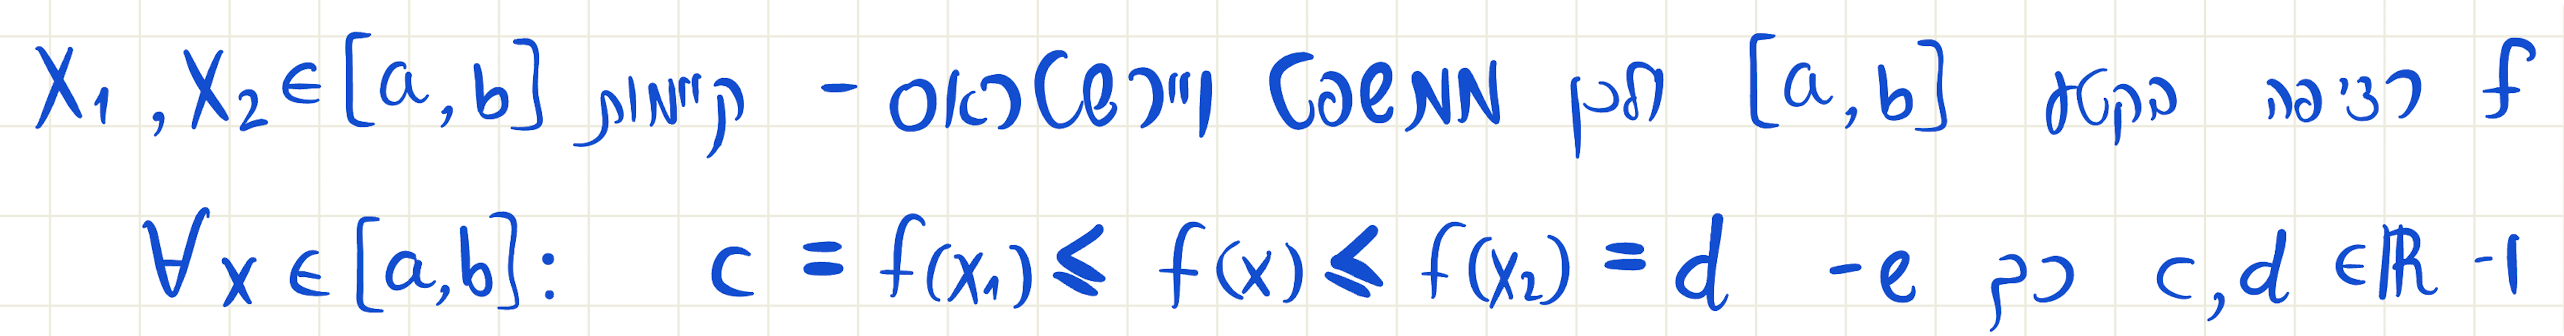 f רציפה בקטע [a,b] לכן ממשפט ויירשטראס - קיימות x₁,x₂∈[a,b]
ו- c,d∈ℝ כך ש- c = f(x₁) ≤ f(x) ≤ f(x₂) = d ∀x∈[a,b]: